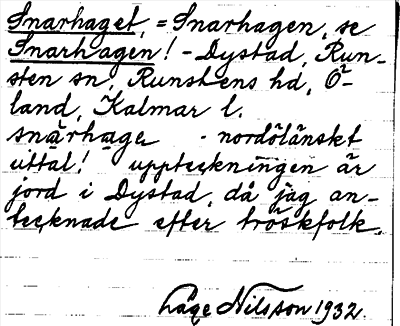 Snarhaget, = Snarhagen, se
Snarhagen! - Dystad, Run-
sten sn, Runstens hd, Ö-
land, Kalmar l.
snārhage - nordöländskt
uttal! uppteckningen är
jord i Dystad, då jag an-
tecknade efter tröskfolk.
Nilsson 1932.